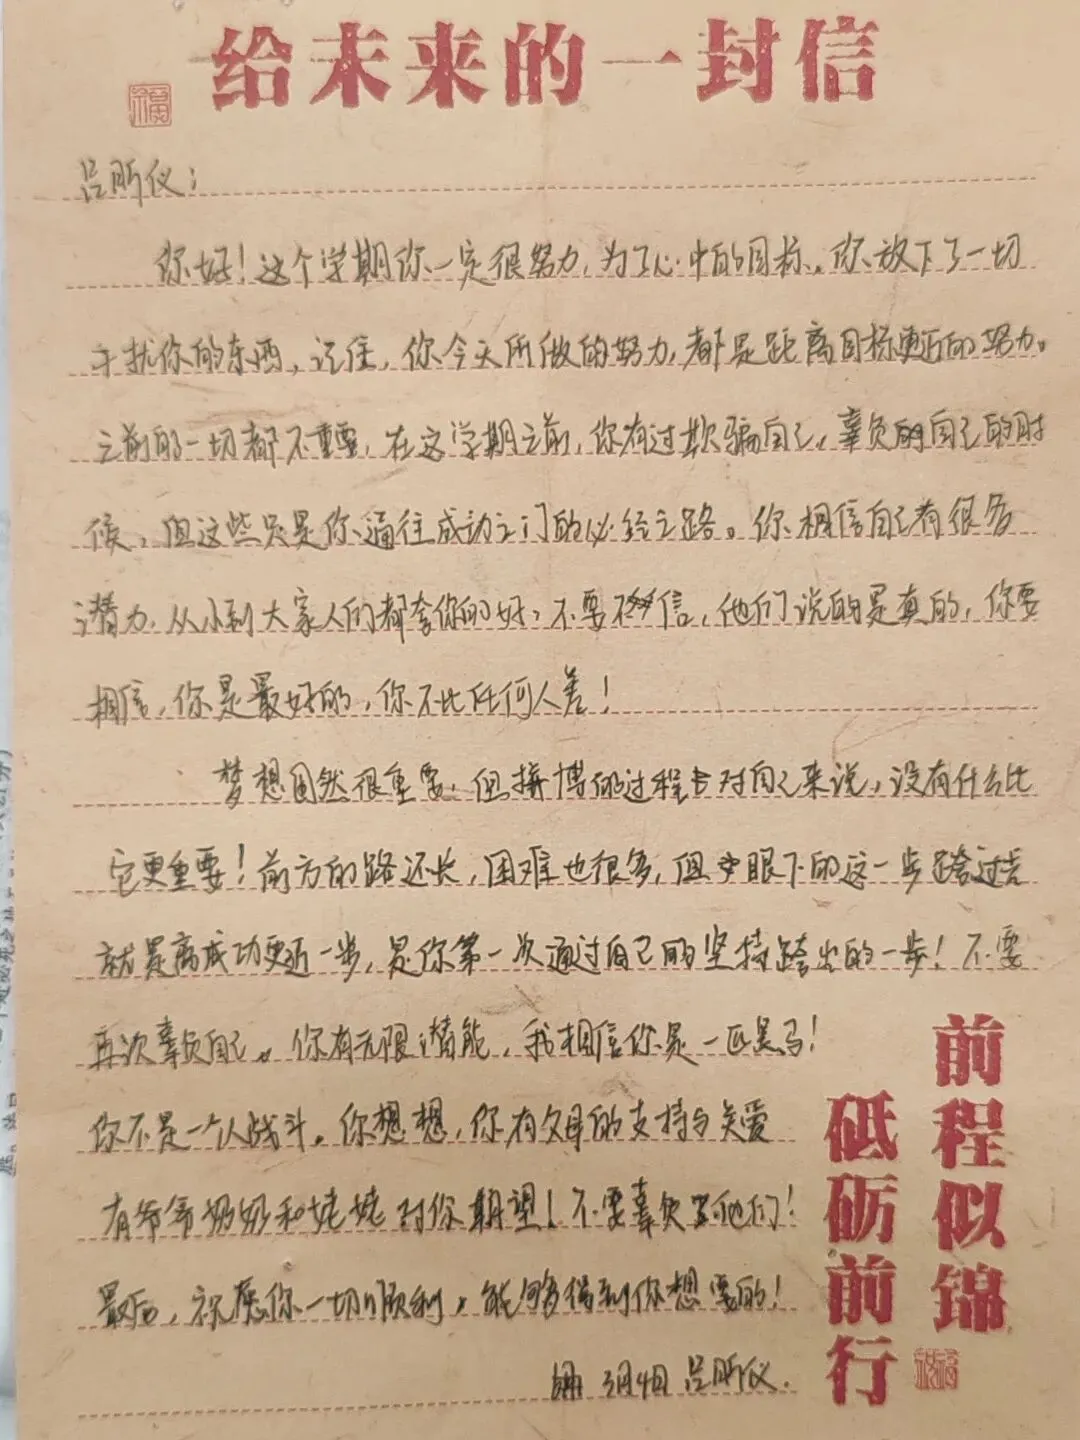 给未来的一封信
福
吕昕仪：
你好！这个学期你一定很努力，为了心中的目标，你放下了一切
干扰你的东西，记住，你今天所做的努力，都是距离目标更近的努力。
之前的一切都不重要，在这学期之前，你有过欺骗自己，辜负自己的时
候，但这些只是你通往成功之门的必经之路。你相信自己有很多
潜力，从小到大家人们都夸你的好，不要不信，他们说的是真的，你要
相信，你是最好的，你不比任何人差！
梦想固然很重要，但拼博的过程对自己来说，没有什么比
它更重要！前方的路还长，困难也很多，但眼下的这一步跨过去
就是离成功更近一步，是你第一次通过自己的坚持跨出的一步！不要
再次辜负自己。你有无限潜能，我相信你是一匹黑马！
你不是一个人战斗。你想想，你有父母的支持与关爱
有爷爷奶奶和姥姥对你期望！不要辜负了他们！
最后，祝愿你一切顺利，能够得到你想要的！
3月4日 吕昕仪.
前程似锦
砥砺前行